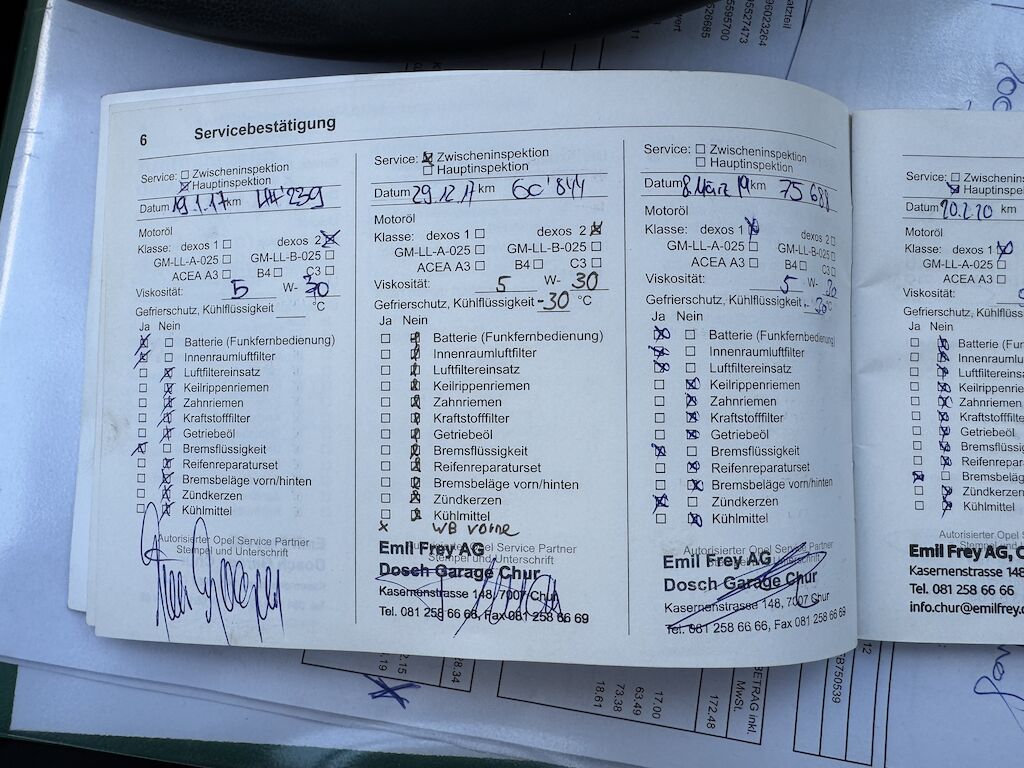 6 Servicebestätigung
Service: ☐ Zwischeninspektion
☒ Hauptinspektion
Datum 19.1.17 km
Motoröl
Klasse: dexos 1 ☐ dexos 2 ☒
GM-LL-A-025 ☐ GM-LL-B-025 ☐
ACEA A3 ☐ B4 ☐ C3 ☐
Viskosität: 5 W- 30
Gefrierschutz, Kühlflüssigkeit °C
Ja Nein
☒ ☐ Batterie (Funkfernbedienung)
☒ ☐ Innenraumluftfilter
☐ ☒ Luftfiltereinsatz
☐ ☒ Keilrippenriemen
☐ ☒ Zahnriemen
☐ ☒ Kraftstofffilter
☐ ☒ Getriebeöl
☒ ☐ Bremsflüssigkeit
☐ ☒ Reifenreparaturset
☐ ☒ Bremsbeläge vorn/hinten
☐ ☒ Zündkerzen
☐ ☒ Kühlmittel
Autorisierter Opel Service Partner
Stempel und Unterschrift
Service: ☒ Zwischeninspektion
☐ Hauptinspektion
Datum 29.12.17 km 60'844
Motoröl
Klasse: dexos 1 ☐ dexos 2 ☒
GM-LL-A-025 ☐ GM-LL-B-025 ☐
ACEA A3 ☐ B4 ☐ C3 ☐
Viskosität: 5 W- 30
Gefrierschutz, Kühlflüssigkeit -30 °C
Ja Nein
☐ ☒ Batterie (Funkfernbedienung)
☐ ☒ Innenraumluftfilter
☐ ☒ Luftfiltereinsatz
☐ ☒ Keilrippenriemen
☐ ☒ Zahnriemen
☐ ☒ Kraftstofffilter
☐ ☒ Getriebeöl
☐ ☒ Bremsflüssigkeit
☐ ☒ Reifenreparaturset
☐ ☒ Bremsbeläge vorn/hinten
☐ ☒ Zündkerzen
☐ ☒ Kühlmittel
x WB vorne
Autorisierter Opel Service Partner
Stempel und Unterschrift
Emil Frey AG
Dosch Garage Chur
Kasernenstrasse 148, 7007 Chur
Tel. 081 258 66 66, Fax 081 258 66 69
Service: ☐ Zwischeninspektion
☐ Hauptinspektion
Datum 8. März 19 km 75 688
Motoröl
Klasse: dexos 1 ☒ dexos 2 ☐
GM-LL-A-025 ☐ GM-LL-B-025 ☐
ACEA A3 ☐ B4 ☐ C3 ☐
Viskosität: 5 W- 30
Gefrierschutz, Kühlflüssigkeit °C
Ja Nein
☒ ☐ Batterie (Funkfernbedienung)
☒ ☐ Innenraumluftfilter
☒ ☐ Luftfiltereinsatz
☐ ☒ Keilrippenriemen
☐ ☒ Zahnriemen
☐ ☒ Kraftstofffilter
☐ ☒ Getriebeöl
☒ ☐ Bremsflüssigkeit
☐ ☒ Reifenreparaturset
☐ ☒ Bremsbeläge vorn/hinten
☒ ☐ Zündkerzen
☐ ☒ Kühlmittel
Autorisierter Opel Service Partner
Stempel und Unterschrift
Emil Frey AG
Dosch Garage Chur
Kasernenstrasse 148, 7007 Chur
Tel. 081 258 66 66, Fax 081 258 66 69
Service: ☐ Zwischeninspe
☒ Hauptinspe
Datum 20.2.20 km
Motoröl
Klasse: dexos 1 ☒
GM-LL-A-025 ☐
ACEA A3 ☐
Viskosität:
Gefrierschutz, Kühlflüss
Ja Nein
☐ ☒ Batterie (Fun
☐ ☒ Innenraumlu
☐ ☒ Luftfiltereins
☐ ☒ Keilrippenrie
☐ ☒ Zahnriemen
☐ ☒ Kraftstofffilte
☐ ☒ Getriebeöl
☐ ☒ Bremsflüssig
☐ ☒ Reifenrepara
☒ ☐ Bremsbeläge
☐ ☒ Zündkerzen
☐ ☒ Kühlmittel
Autorisierter O
Emil Frey AG, C
Kasernenstrasse 148
Tel. 081 258 66 66
info.chur@emilfrey.c
BETRAG inkl.
MwSt.
172.48
17.00
63.49
73.38
18.61